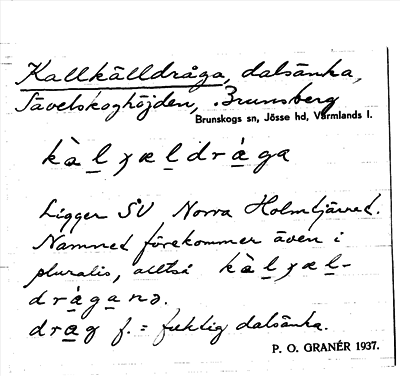 Kallkälldråga, dalsänka,
Sävelskoghöjden, Brunsberg
Brunskogs sn, Jösse hd, Värmlands l.
kàl̲ɣæl̲drága
Ligger SV Norra Holmtjärnet.
Namnet förekommer även i
pluralis, alltså kàl̲ɣæl̲-
drága̲nə.
dra̲g f. = fuktig dalsänka.
P. O. GRANÉR 1937.